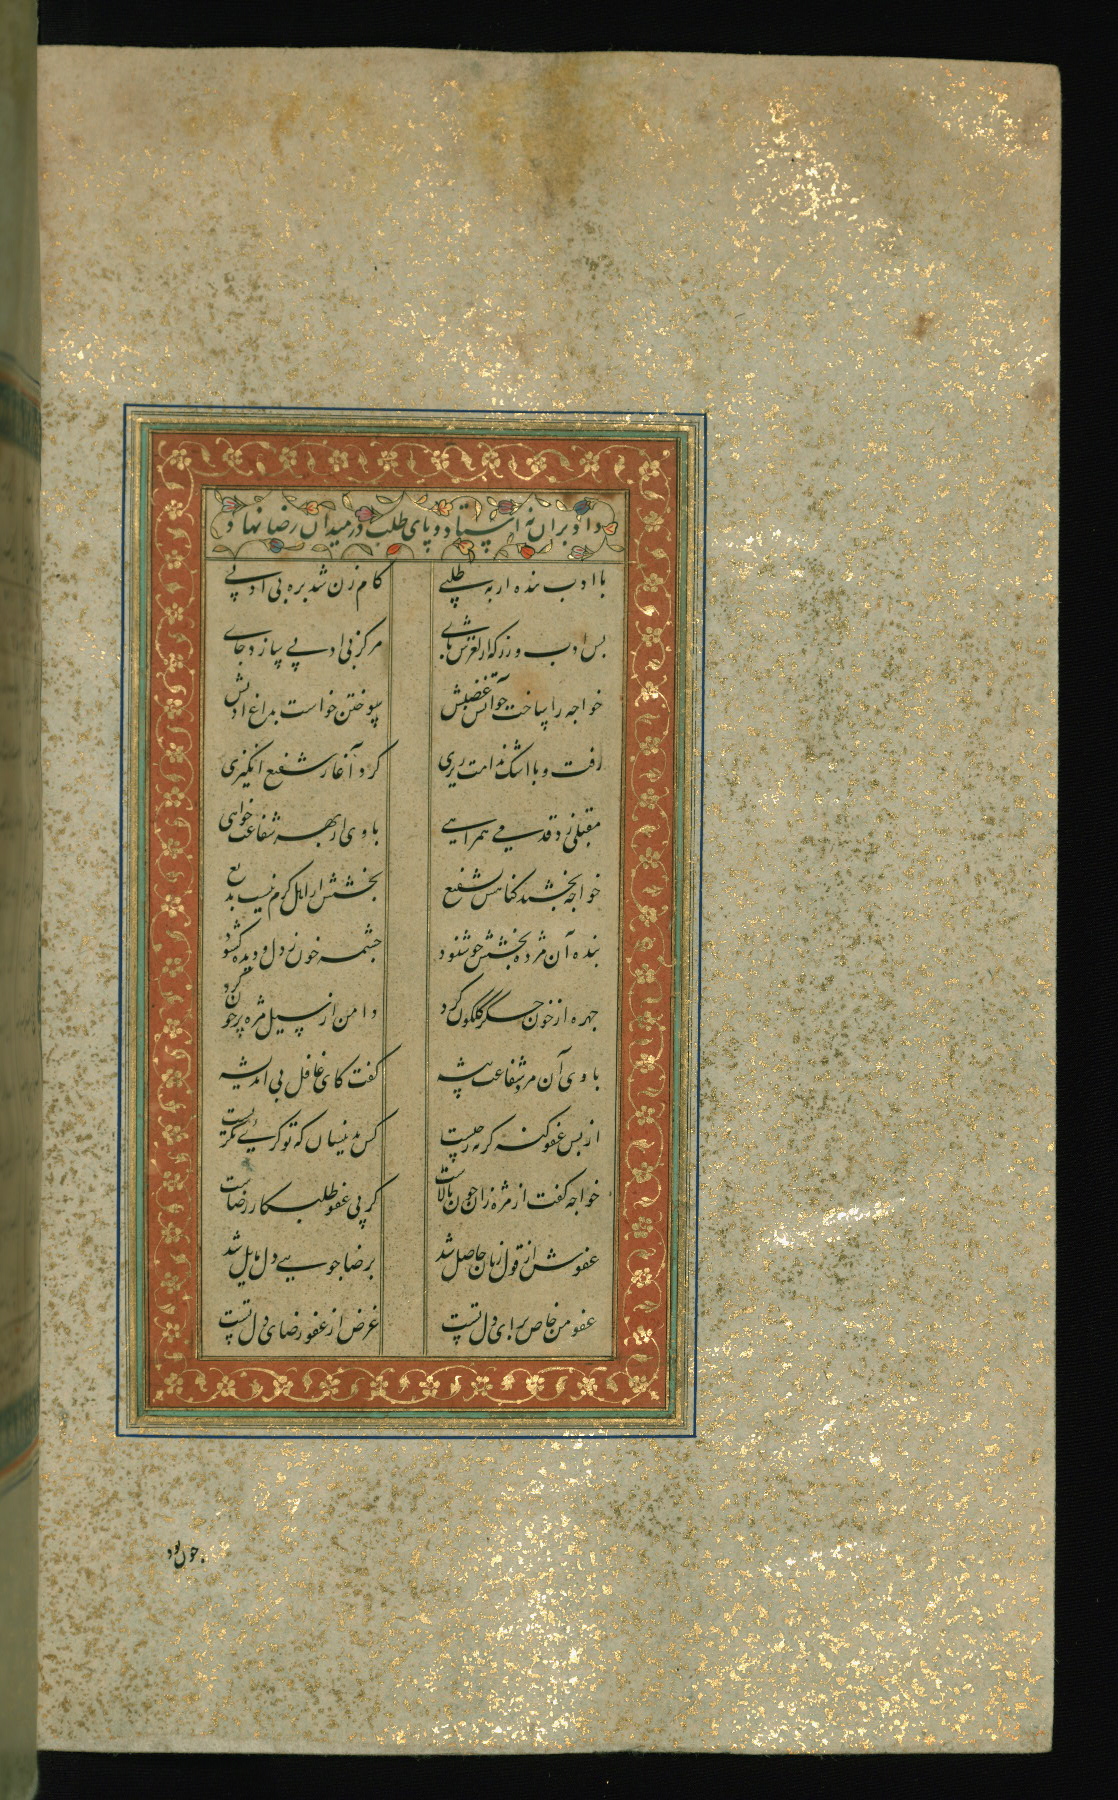 داد و بران نه ایستاد و پای طلب در میدان رضا نهاد
با ادب بنده ار به طلبی کام زن شد بره بی ادبی
بس ادب ورز که از لغزش های مرکز بی ادبی سازد جای
خواجه را ساخت چو آتش غضبش سوختن خواست بداغ ادبش
رفت و با اشک ندامت ریزی کرد آغاز شفیع انگیزی
مقبلی زد قدمی همراهی با وی از بهر شفاعت خواهی
خواجه بخشید گناهش بشفیع بخشش از اهل کرم نیست بدیع
بنده آن مژده بخشش چو شنود چشمه خون ز دل و دیده گشود
چهره از خون جگر گلگون کرد دامن از سیل مژه پر خون کرد
با وی آن مرد شفاعت پیشه گفت کای غافل بی اندیشه
از پس عفو گنه گریه ز چیست کس بدینسان که تو گریی نگریست
خواجه گفت از مژه زان خون پالاست کز پی عفو طلبکار رضاست
عفوش از قول زبان حاصل شد برضا جویی دل مایل شد
عفو من خاص برای دل تست غرض از عفو رضای دل تست
چون بود